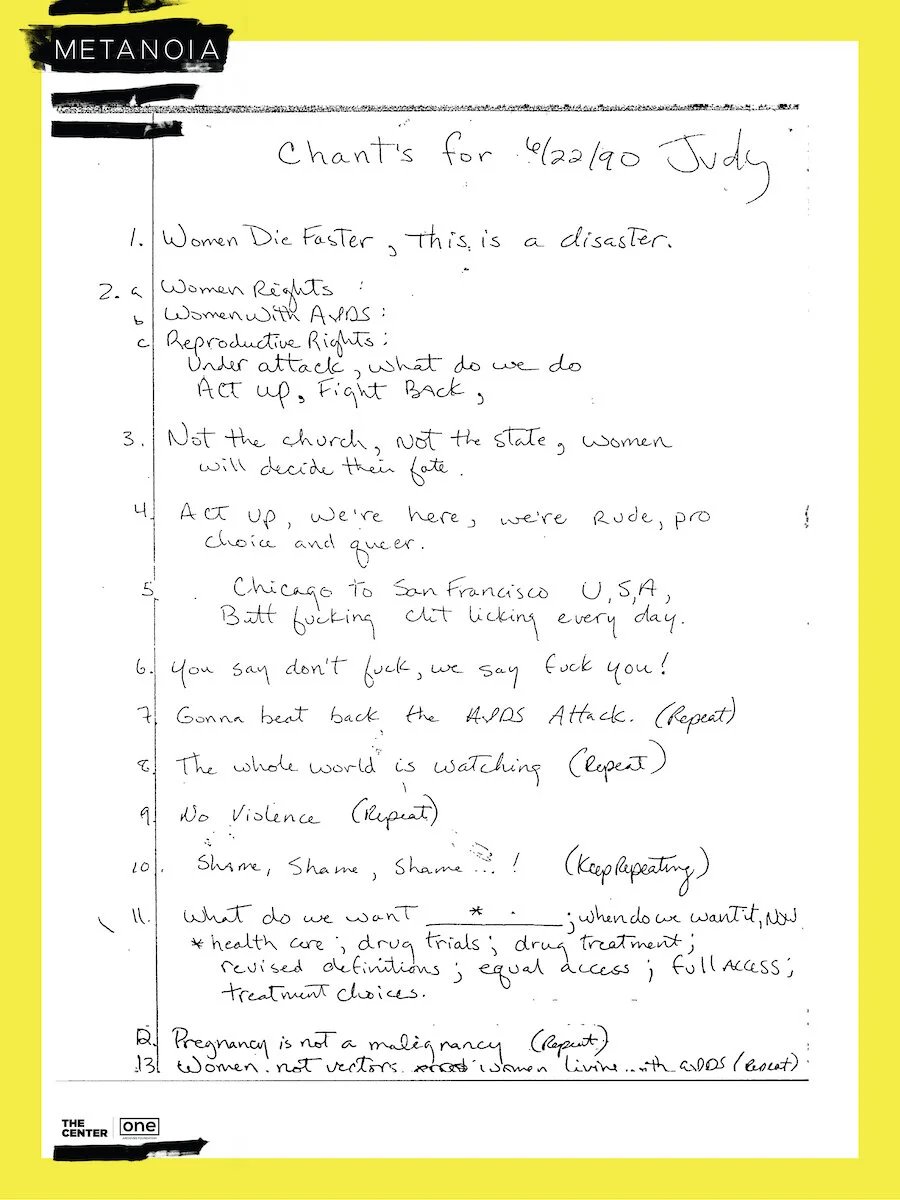 METANOIA
Chant's for 6/22/90 Judy
1. Women Die Faster, This is a disaster.
2. a Women Rights :
b Women With AIDS :
c Reproductive Rights :
Under attack, what do we do
ACT UP, Fight Back,
3. Not the church, Not the state, women
will decide their fate.
4. ACT UP, We're here, we're Rude, pro
choice and queer.
5. Chicago To San Francisco U,S,A,
Butt fucking clit licking every day.
6. You say don't fuck, we say fuck you!
7. Gonna beat back the AIDS Attack. (Repeat)
8. The whole world is watching (Repeat)
9. No Violence (Repeat)
10. Shame, Shame, Shame...! (Keep Repeating)
11. What do we want ___*___; when do we want it, Now
* health care; drug trials; drug treatment;
revised definitions; equal access; full ACCESS;
treatment choices.
12. Pregnancy is not a malignancy (Repeat)
13. Women not vectors women living with AIDS (Repeat)
THE
CENTER
one